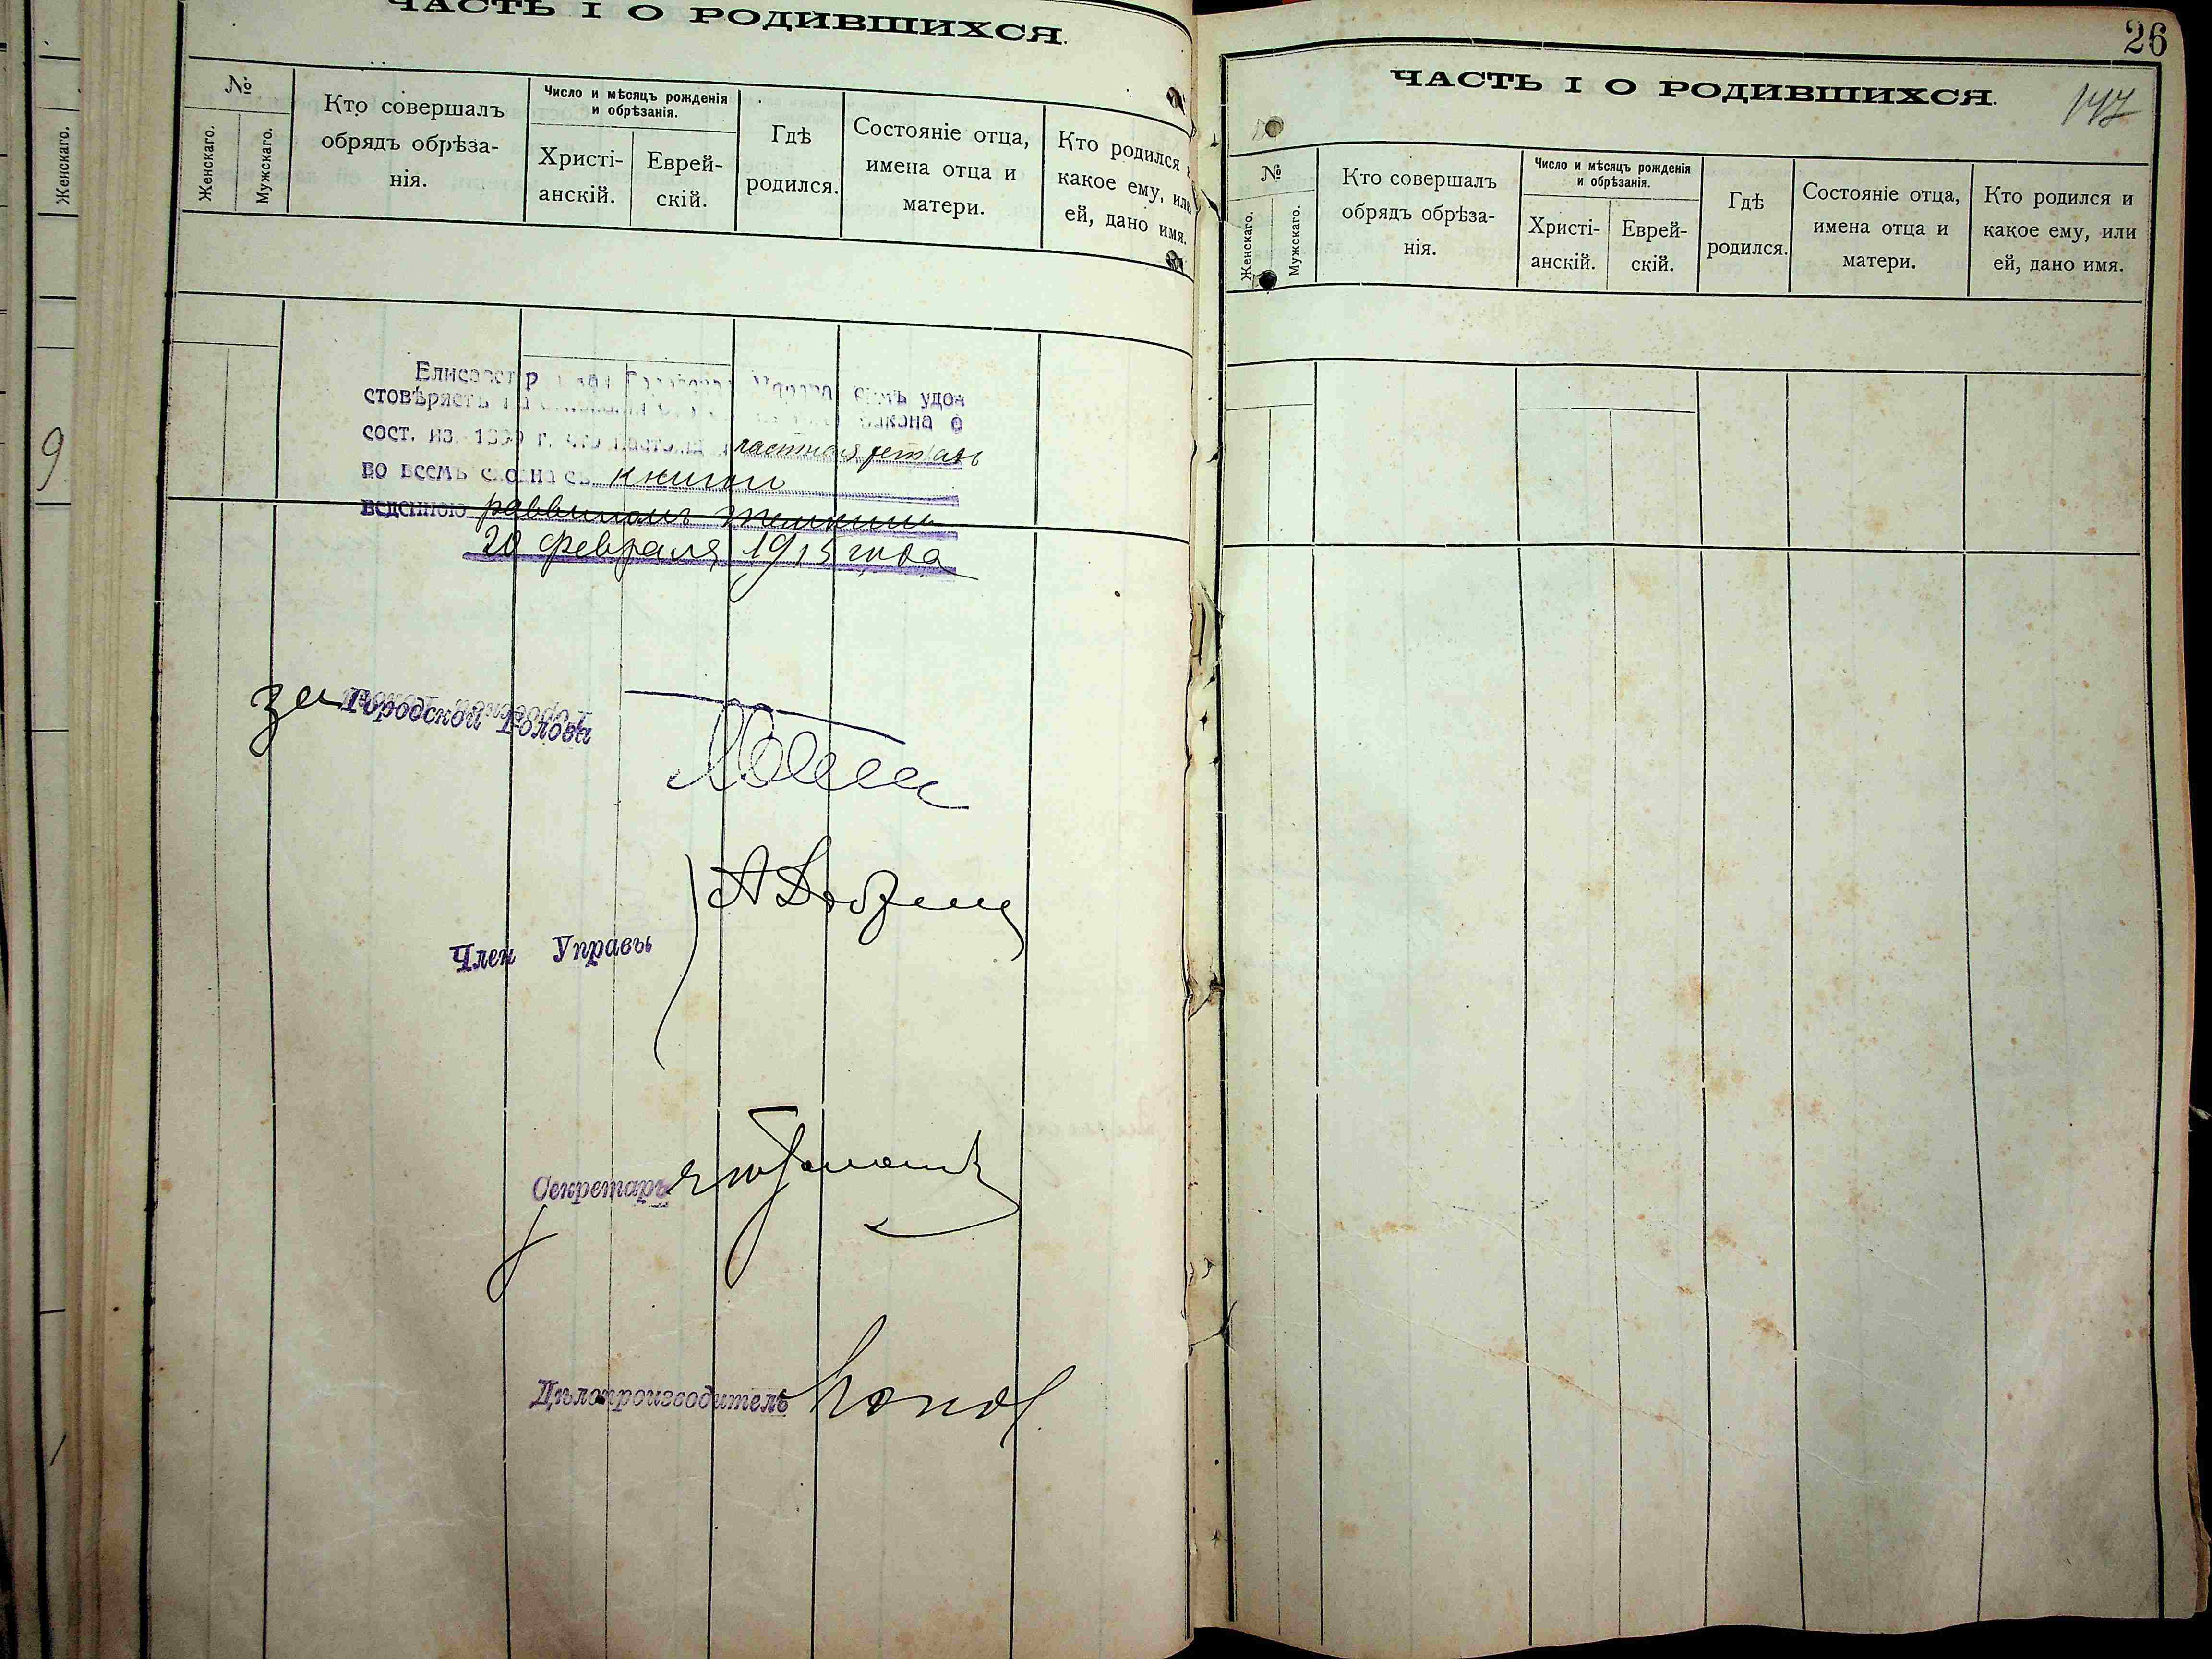 ЧАСТЬ I О РОДИВШИХСЯ.
№
Женскаго.
Мужскаго.
Кто совершалъ
обрядъ обрѣза-
нія.
Число и мѣсяцъ рожденія
и обрѣзанія.
Христі-
анскій.
Еврей-
скій.
Гдѣ
родился.
Состояніе отца,
имена отца и
матери.
Кто родился
какое ему, или
ей, дано имя.
Женскаго.
9
удо-
стовѣряетъ закона о
сост. из. г. что
во всемъ сходна съ книгой
веденною раввиномъ
20 февраля 1915 года
за Городской Голова
Член Управы
Секретарь
Дѣлопроизводитель
26
147
ЧАСТЬ I О РОДИВШИХСЯ.
№
Женскаго.
Мужскаго.
Кто совершалъ
обрядъ обрѣза-
нія.
Число и мѣсяцъ рожденія
и обрѣзанія.
Христі-
анскій.
Еврей-
скій.
Гдѣ
родился.
Состояніе отца,
имена отца и
матери.
Кто родился и
какое ему, или
ей, дано имя.